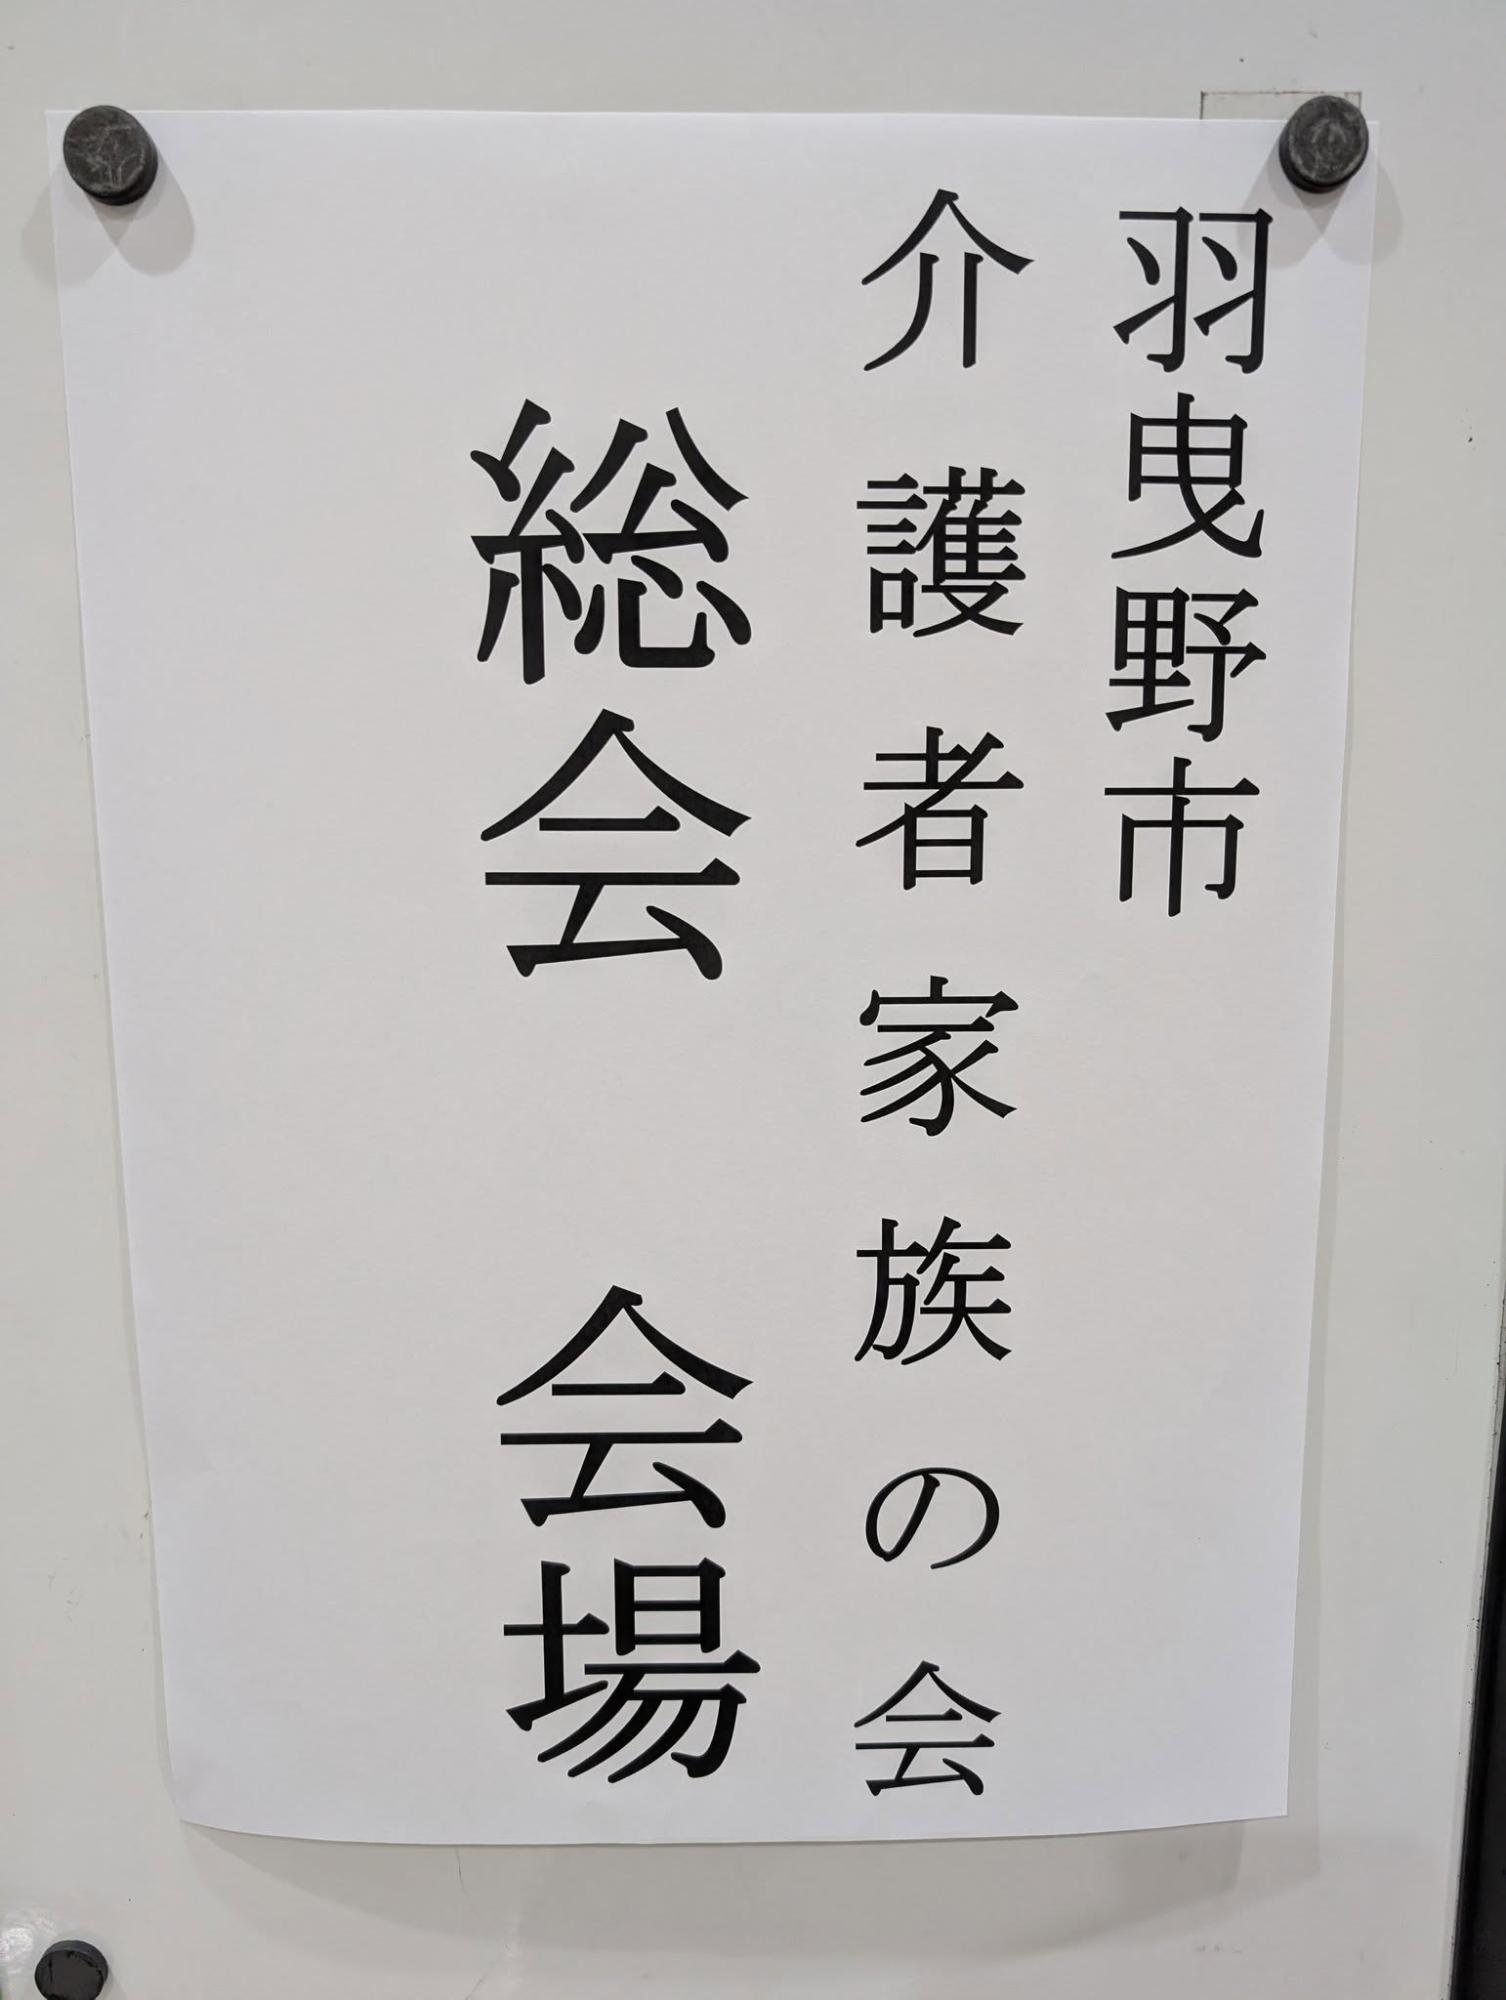 羽曳野市
介護者家族の会
総会　会場